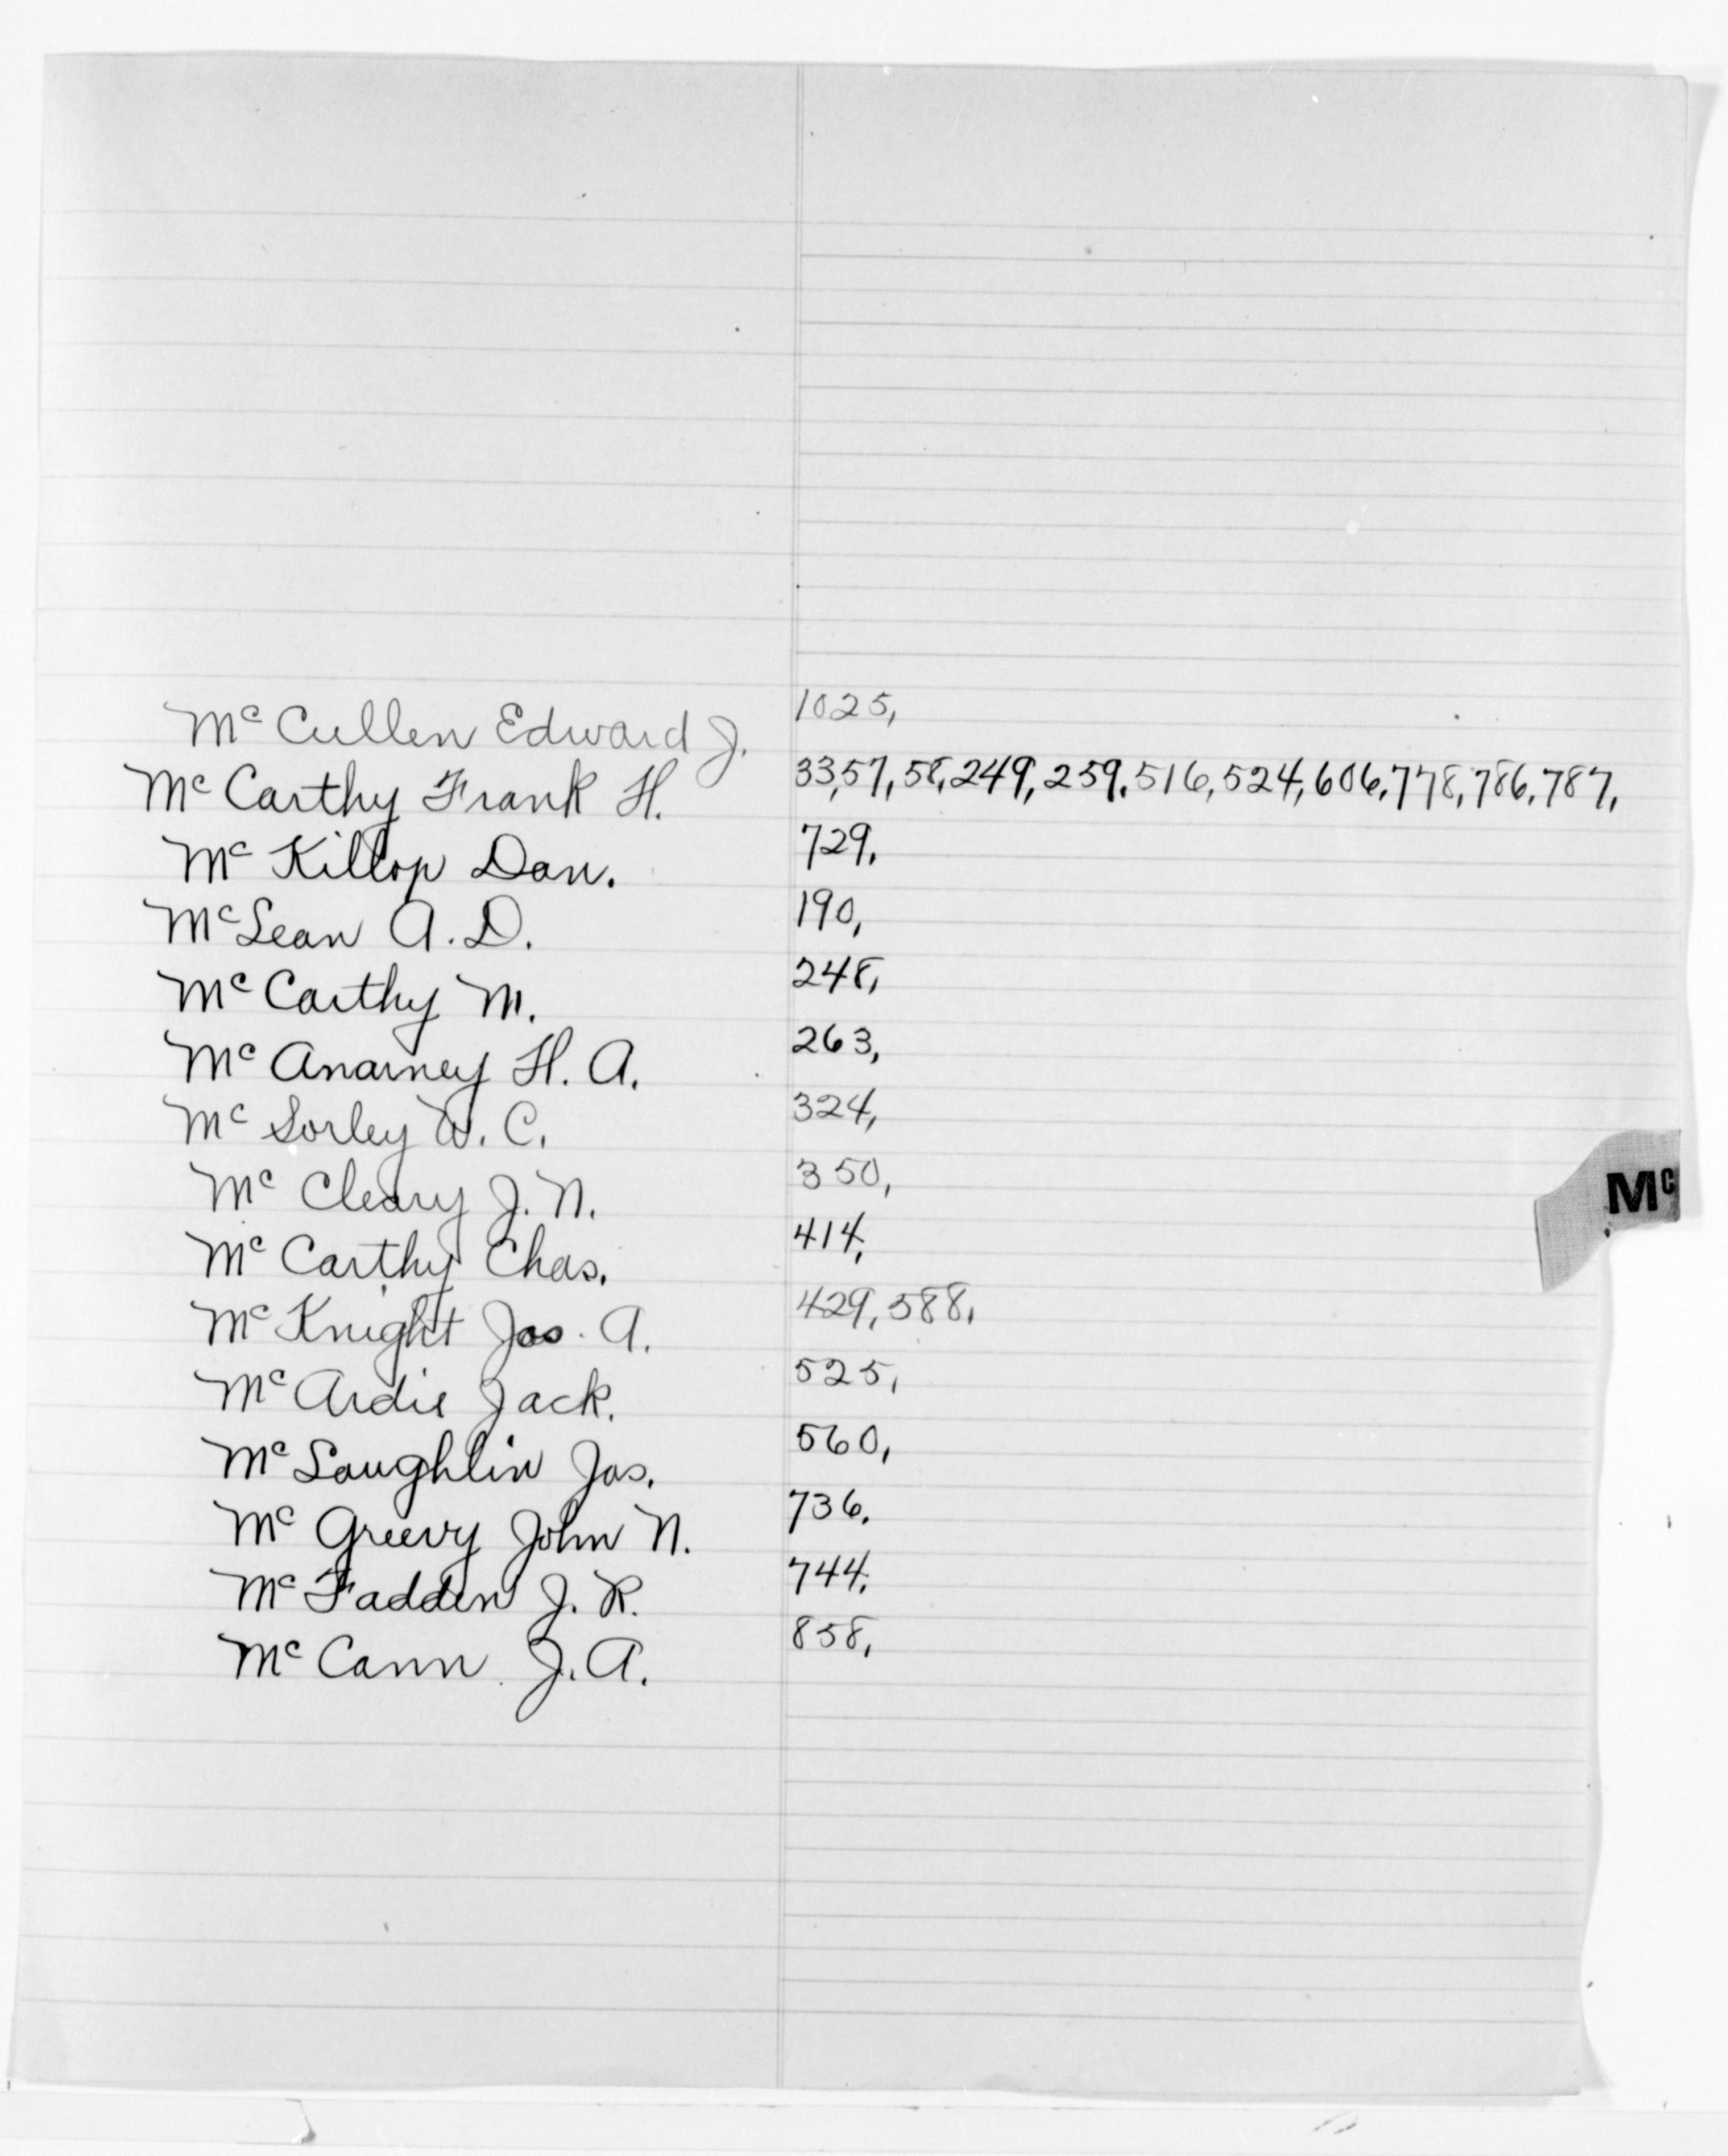 Mc Cullen Edward J. 1025,
Mc Carthy Frank H. 33,57,58,249,259,516,524,606,778,786,787,
Mc Killop Dan. 729,
McLean A.D. 190,
Mc Carthy M. 248,
Mc Anarney H. A. 263,
Mc Sorley W. C. 324,
Mc Cleary J. N. 350,
Mc Carthy Chas. 414,
Mc Knight Jas. A. 429,588,
Mc Ardie Jack. 525,
Mc Laughlin Jas. 560,
Mc Greevy John N. 736,
Mc Fadden J. R. 744,
Mc Cann J.A. 858,
Mc